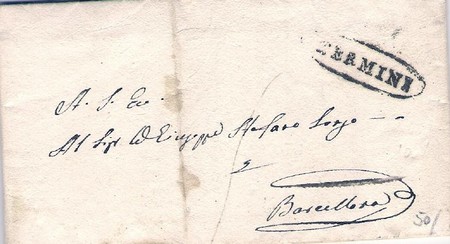 TERMINI
A. S. Ecc
Al Sig. D Giuseppe Stefano
Barcellona
50/